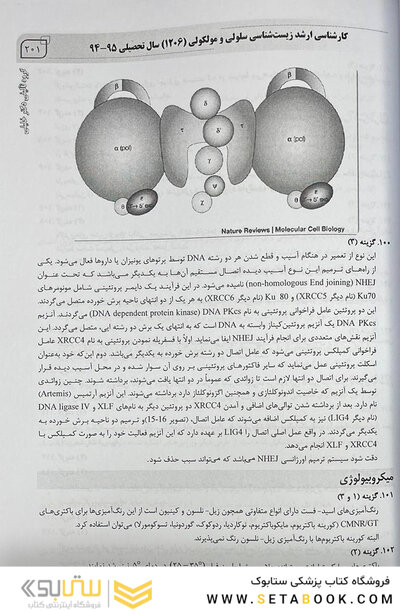 کارشناسی ارشد زیست‌شناسی سلولی و مولکولی (۱۲۰۶) سال تحصیلی ۹۵-۹۴
۲۰۱
β
β
δ
τ
δ'
τ
α (pol)
γ
α (pol)
ψ
θ
ε
χ
θ
ε
Nature Reviews | Molecular Cell Biology
۱۰۰. گزینه (۳)
این نوع از تعمیر در هنگام آسیب و قطع شدن هر دو رشته DNA توسط پرتوهای یونیزان یا داروها فعال می‌شود. یکی
از راه‌های ترمیم این نوع آسیب دیده اتصال مستقیم آن‌ها به یکدیگر می‌باشد که تحت عنوان
NHEJ (non-homologous End joining) نامیده می‌شود. در این فرآیند یک دایمر پروتئینی شامل مونومرهای
Ku70 (نام دیگر XRCC5) و Ku 80 (نام دیگر XRCC6) به هر یک از دو انتهای ناحیه برش خورده متصل می‌گردند.
این دو پروتئین عامل فراخوانی پروتئینی به نام DNA PKcs (DNA dependent protein kinase) می‌گردند. آنزیم
DNA PKcs یک آنزیم پروتئین‌کیناز وابسته به DNA است که به انتهای یک برش دو رشته ایی، متصل می‌گردد. این
آنزیم نقش‌های متعددی برای انجام فرآیند NHEJ ایفا می‌نماید. اولاً با فسفریله نمودن پروتئینی به نام XRCC4 عامل
فراخوانی کمپلکس پروتئینی می‌شود که عامل اتصال دو رشته برش خورده به یکدیگر می‌باشد. دوم این‌که خود به‌عنوان
اسکلت پروتئینی عمل می‌نماید که سایر فاکتورهای پروتئینی بر روی آن سوار شده و در محل آسیب دیده قرار
می‌گیرند. برای اتصال دو انتها لازم است تا زوائدی که عموماً در دو انتها یافت می‌شوند، برداشته شوند. چنین زوائدی
توسط یک آنزیم که خاصیت اندونوکلئازی و همچنین اگزونوکلئاز دارد برداشته می‌شوند. این آنزیم آرتمیس (Artemis)
نام دارد. بعد از برداشته شدن توالی‌های اضافی و آمدن XRCC4 دو پروتئین دیگر به نام‌های XLF و DNA ligase IV
(نام دیگر LIG4) نیز به کمپلکس اضافه می‌شوند که عامل اتصال، (تصویر 16-15)و ترمیم دو ناحیه برش خورده به
یکدیگر می‌گردند. در واقع عمل اصلی اتصال را LIG4 بر عهده دارد که این آنزیم فعالیت خود را به صورت کمپلکس با
XRCC4 و XLF انجام می‌دهد.
دقت شود سیستم ترمیم اورژانسی NHEJ می‌باشد که می‌تواند سبب حذف شود.
میکروبیولوژی
۱۰۱. گزینه (۱ و ۳)
رنگ‌آمیزی‌های اسید- فست دارای انواع متفاوتی همچون زیل- نلسون و کینیون است از این رنگ‌آمیزی‌ها برای باکتری‌های
CMNR/GT (کورینه باکتریوم، مایکوباکتریوم، نوکاردیا، رودوکوک، گوردونیا، تسوکومورلا) می‌توان استفاده کرد.
البته کورینه باکتریوم‌ها با رنگ‌آمیزی زیل- نلسون رنگ نمی‌پذیرند.
۱۰۲. گزینه (۲)
ستابوک
فروشگاه اینترنتی کتاب
فروشگاه کتاب پزشکی ستابوک
WWW.SETABOOK.COM